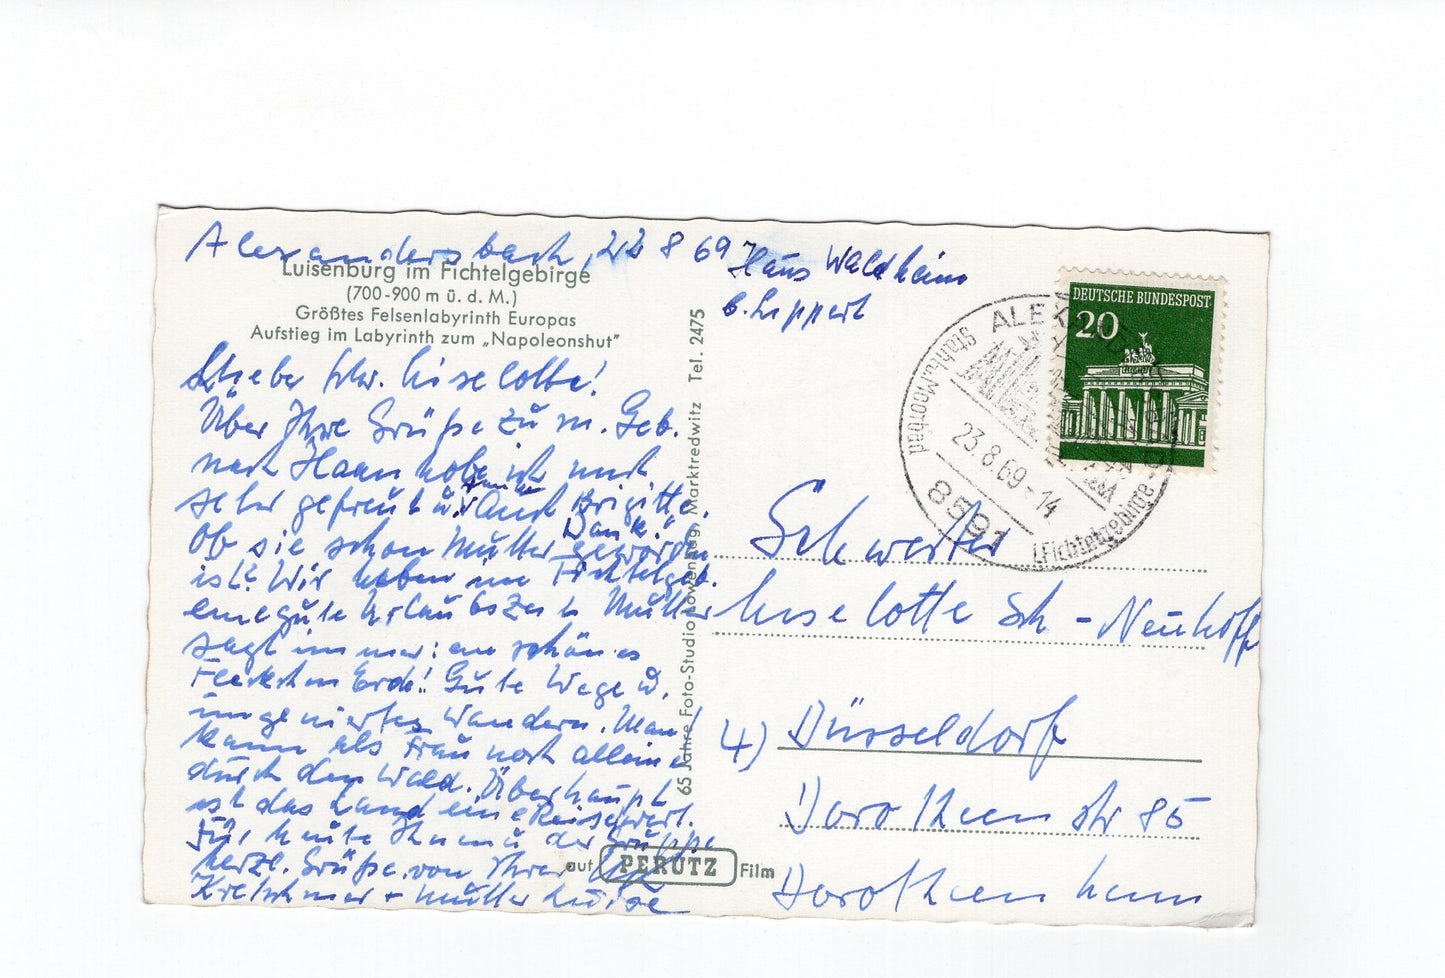 Alexandersbach, 22 8 69 Haus Waldheim
b. Lippert
Luisenburg im Fichtelgebirge
(700-900 m ü. d. M.)
Größtes Felsenlabyrinth Europas
Aufstieg im Labyrinth zum „Napoleonshut"
Liebe Schw. Liselotte!
Über Ihre Grüße zu m. Geb.
nach Haan habe ich mich
sehr gefreut u. Auch Brigitte.
Dank."
Ob sie schon Mutter geworden
ist? Wir haben im Fichtelgeb.
eine gute Urlaubszeit. Mutter
sagt immer: ein schönes
Fleckchen Erde! Gute Wege u.
ungeniertes Wandern. Man
kann als Frau noch allein
durch den Wald. Überhaupt
ist das Land eine Reise wert.
Für heute Ihnen u der Gruppe
herzl. Grüße von Ihrer
Kretschmer + Mutter Luise
65 Jahre Foto-Studio Löwenhag, Marktredwitz Tel. 2475
auf PERUTZ Film
DEUTSCHE BUNDESPOST
20
ALEX
Stahl u. Moorbad
23.8.69-14
8591
(Fichtelgebirge
Schwester
Liselotte Sch - Neuhoff
4) Düsseldorf
Dorotheenstr 85
Dorotheenheim